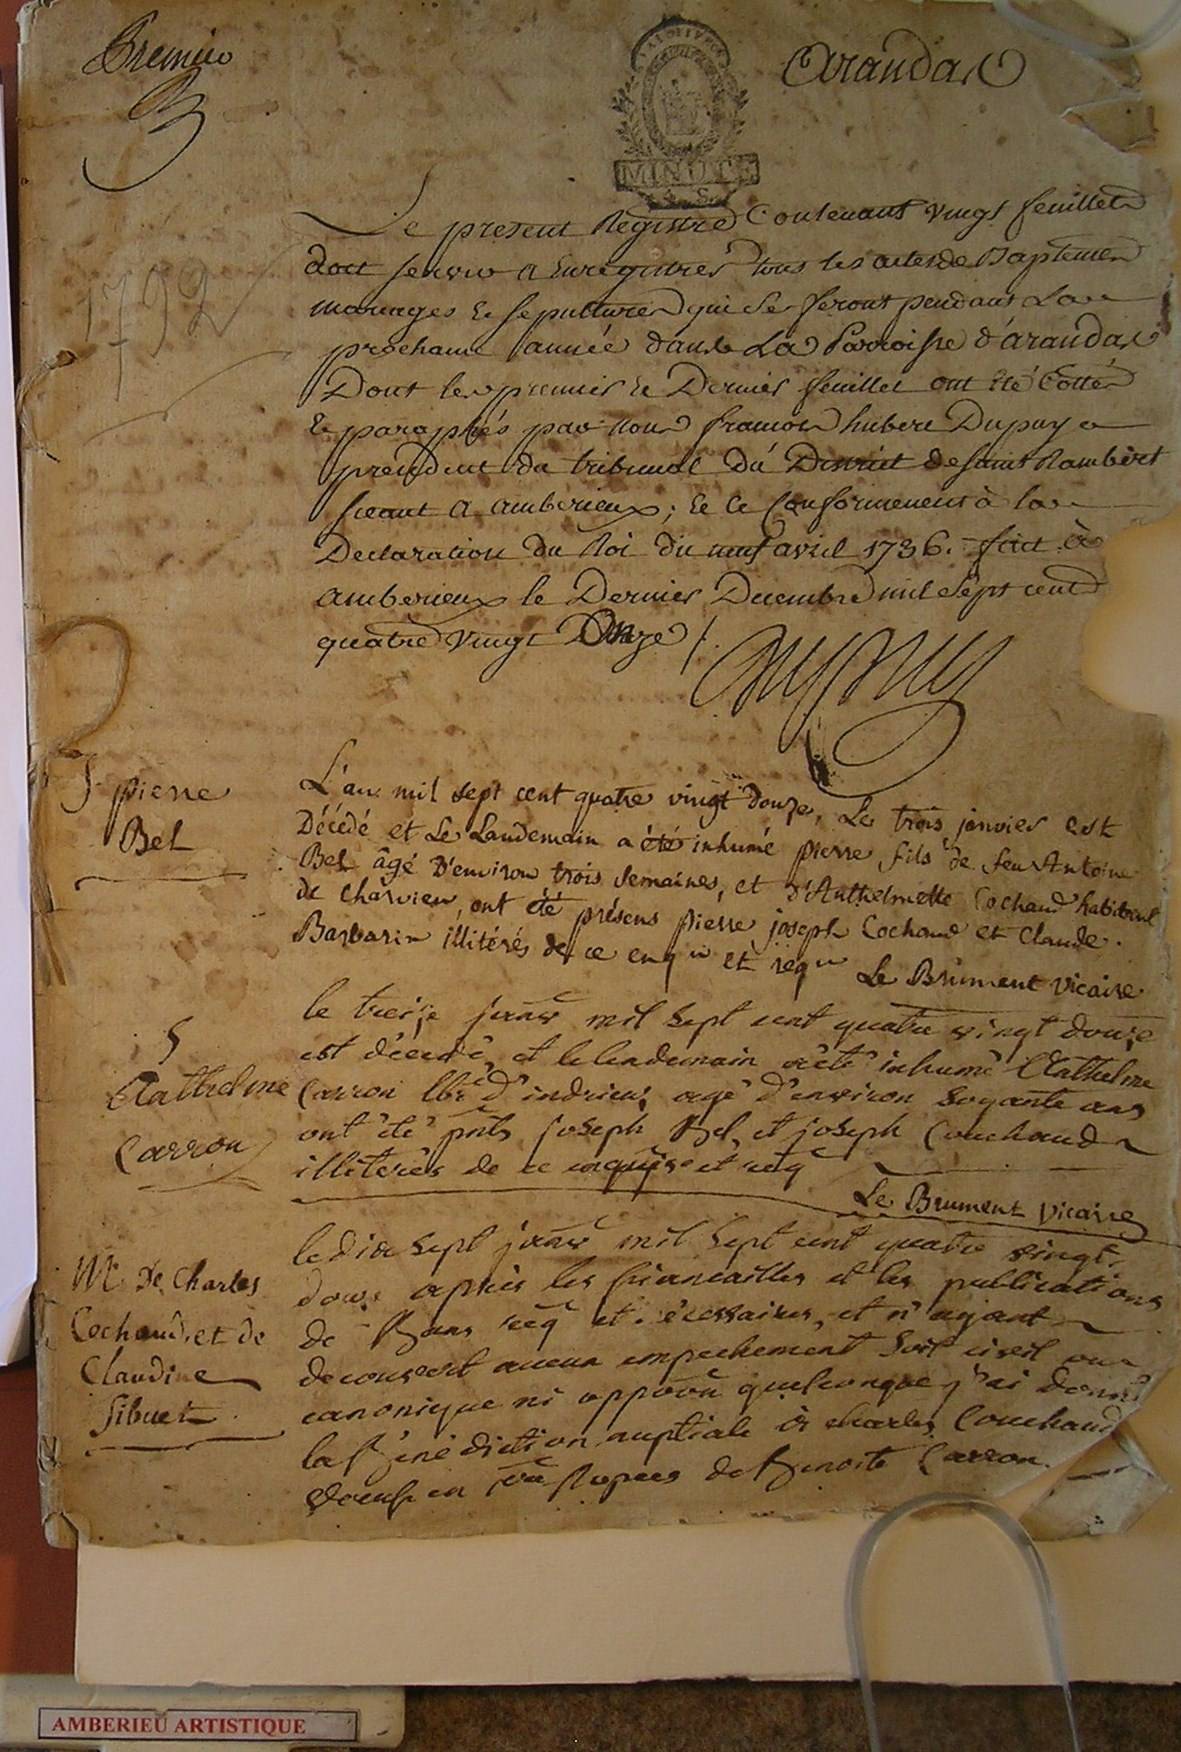 Premier
Arandas
LA LOI ET LE ROI
MINUTE
1792
Le present Registre Contenant vingt feuillets
doit servir a Enregistrer tous les actes de Baptemes
mariages Et sepultures qui se feront pendant La
prochaine année dans La Parroisse d'arandas
Dont les premier Et Dernier feuillet ont Eté Cottés
Et paraphés par Nous francois hubert Dupuy
president du tribunal du District de Saint Rambert
seant a amberieux; Et ce Conformement à la
Declaration du Roi du neuf avril 1736. fait à
amberieux le Dernier Decembre mil Sept cent
quatre vingt Onze /.
Dupuy
S. pierre
Bel
L'an mil sept cent quatre vingt douze, Le trois janvier est
Décédé et Le Landemain a été inhumé pierre fils de feu Antoine
Bel âgé D'environ trois semaines, et D'Anthelmette Cochand habitant
de Charvieu, ont été présens pierre joseph Cochand et Claude
Barbarin illitérés de ce enq is et reqis Le Brument vicaire
S
Anthelme
Carron
le treize janv mil sept cent quatre vingt douze
est décédé et le lendemain a été inhumé Anthelme
Carron lbr d'indrieu, agé d'environ soyante ans
ont été pnts joseph Bel et joseph Couchaud
illiterés de ce enquis et req
Le Brument vicaire
M. De Charles
Cochand, et de
Claudine
Sibuet
le dix sept janv mil sept cent quatre vingt
douze après les fiancailles et les publications
de Bans req et necessaires, et n'ayant
decouvert aucun empechement soit civil ou
canonique ni oppoõn quelconque j'ai donné
la Bénédiction nuptiale à charles Couchaud
de Benoite Carron.
AMBERIEU ARTISTIQUE